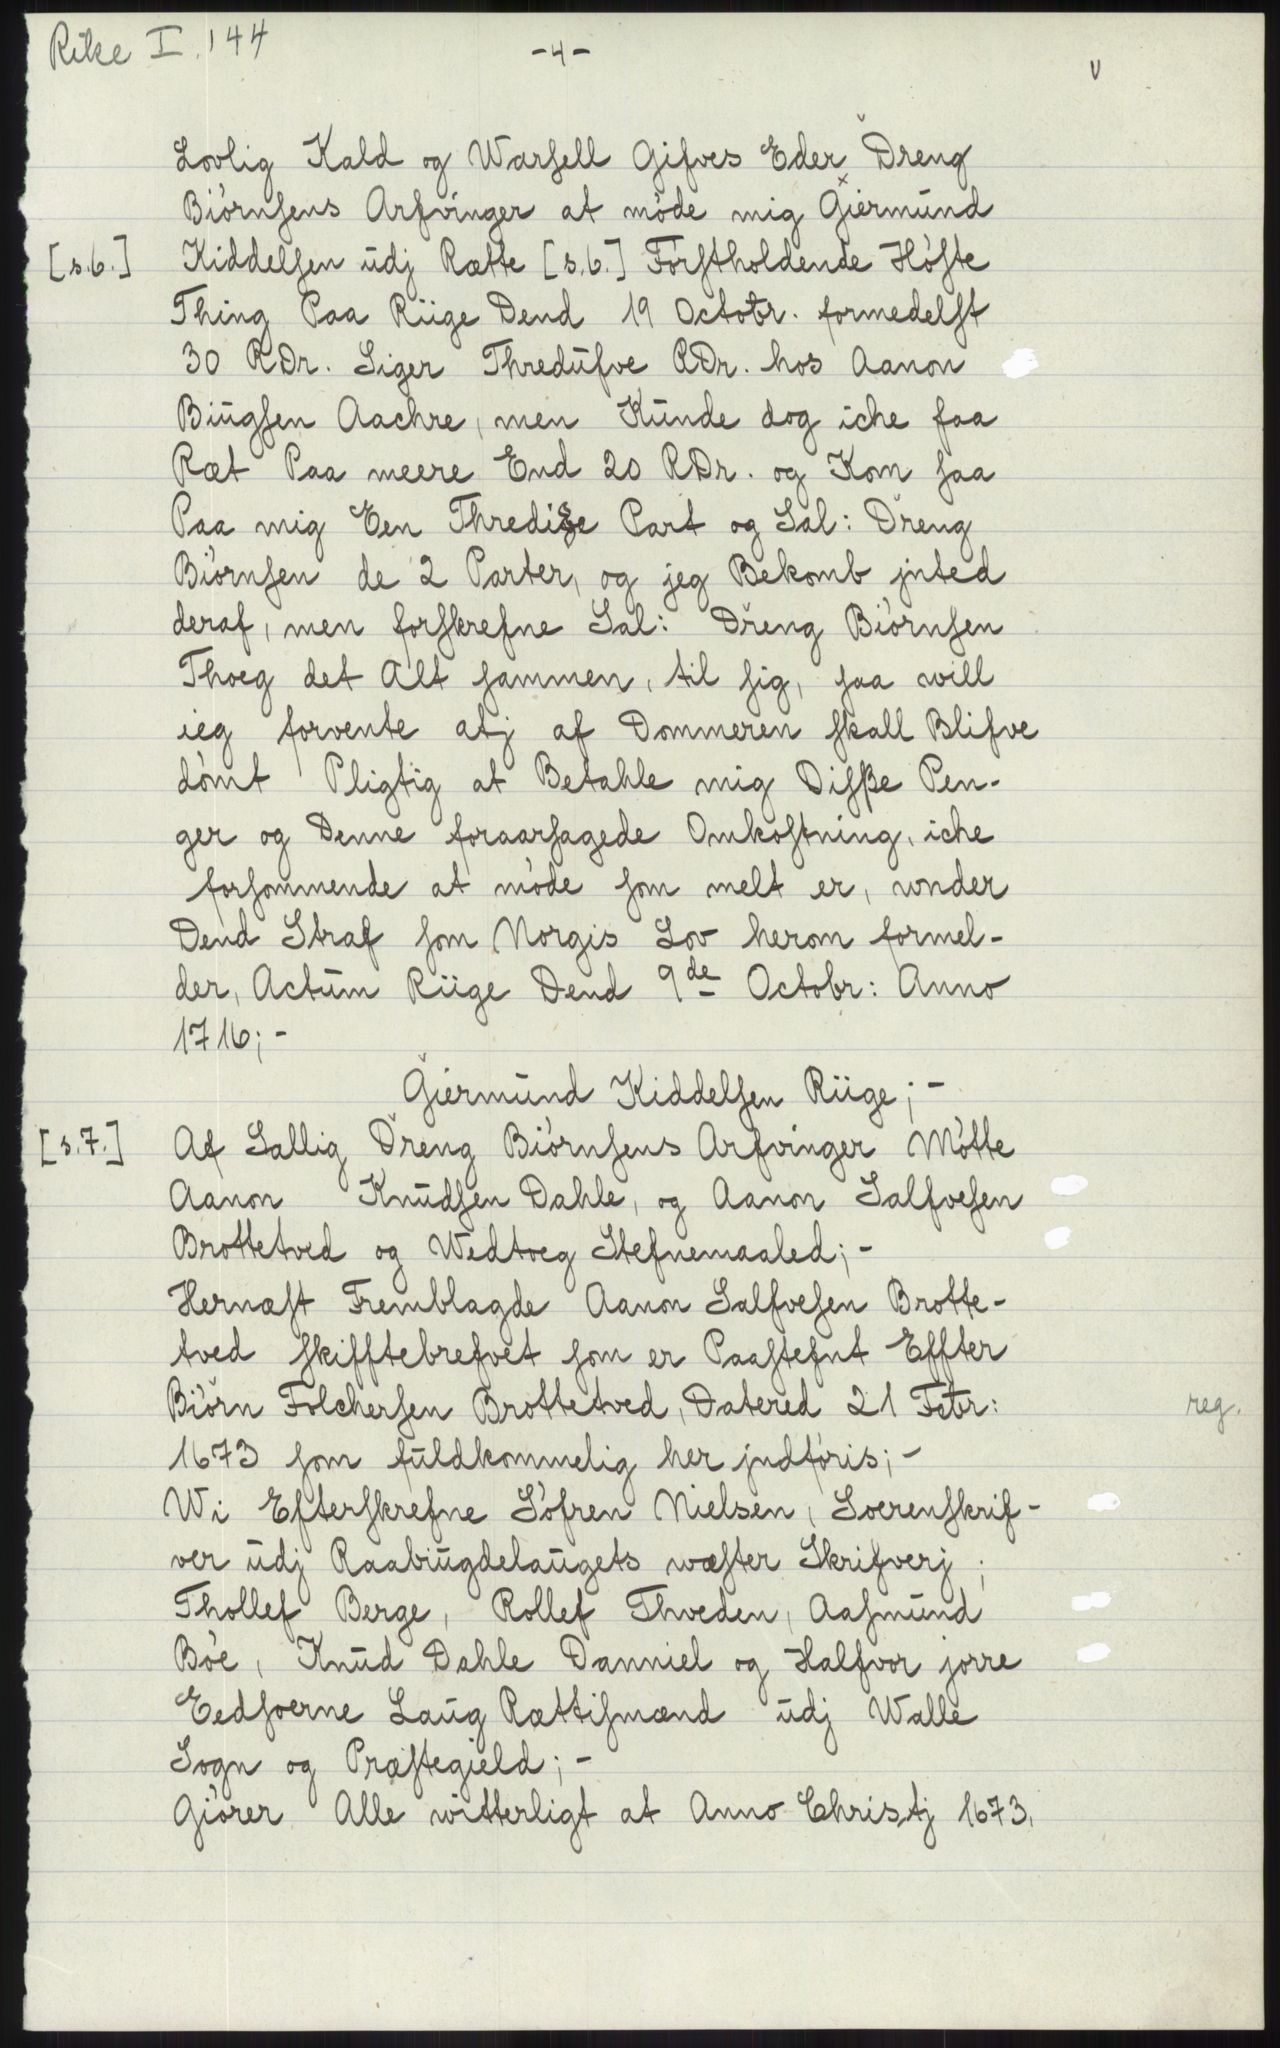 Rike I. 144
-4-
v
Lovlig Kald og Warsell Gifves Eder Dreng
Biörnsens Arfvinger at möde mig Giermund
[s.6.] Kiddelsen udj Rætte [s.6.] Förstholdende Höste
Thing Paa Riige Dend 19 Octobr. formedelst
30 RDr. Siger Thredufve RDr. hos Aanon
Biugsen Aachre, men Kunde dog iche faa
Ræt Paa meere End 20 RDr. og Kom saa
Paa mig Een Thredige Part og Sal: Dreng
Biörnsen de 2 Parter, og jeg Bekomb jnted
deraf, men forskrefne Sal: Dreng Biörnsen
Thoeg det Alt sammen, til sig, saa will
ieg forvente atj af Dommeren skall Blifve
dömt Pligtig at Betahle mig Disße Pen-
ger og Denne foraarsagede Omkostning, iche
forsommende at möde som melt er, under
Dend Straf som Norgis Lov herom formel-
der, Actum Riige Dend 9de Octobr: Anno
1716; -
Giermund Kiddelsen Riige; -
[s.7.] Af Sallig Dreng Biörnsens Arfvinger Mötte
Aanon Knudsen Dahle, og Aanon Salfvesen
Brottetved og Wedtoeg Stefnemaaled; -
Hernæst Fremblagde Aanon Salfvesen Brotte-
tved skifftebrefvet som er Paastefnt Effter
Biörn Folchersen Brottetved, Datered 21 Febr: reg.
1673 som fuldkommelig her jndföris; -
Wi Efterskrefne Söfren Nielsen, Soerenskrif-
ver udj Raabiugdelaugets wæster Skrifverj;
Thollef Berge, Rollef Thveden, Aasmund
Böe, Knud Dahle Danniel og Halfvor jorre
Eedsoerne Laug Rættismænd udj Walle
Sogn og Præstegield; -
Giörer Alle witterligt at Anno Christj 1673,